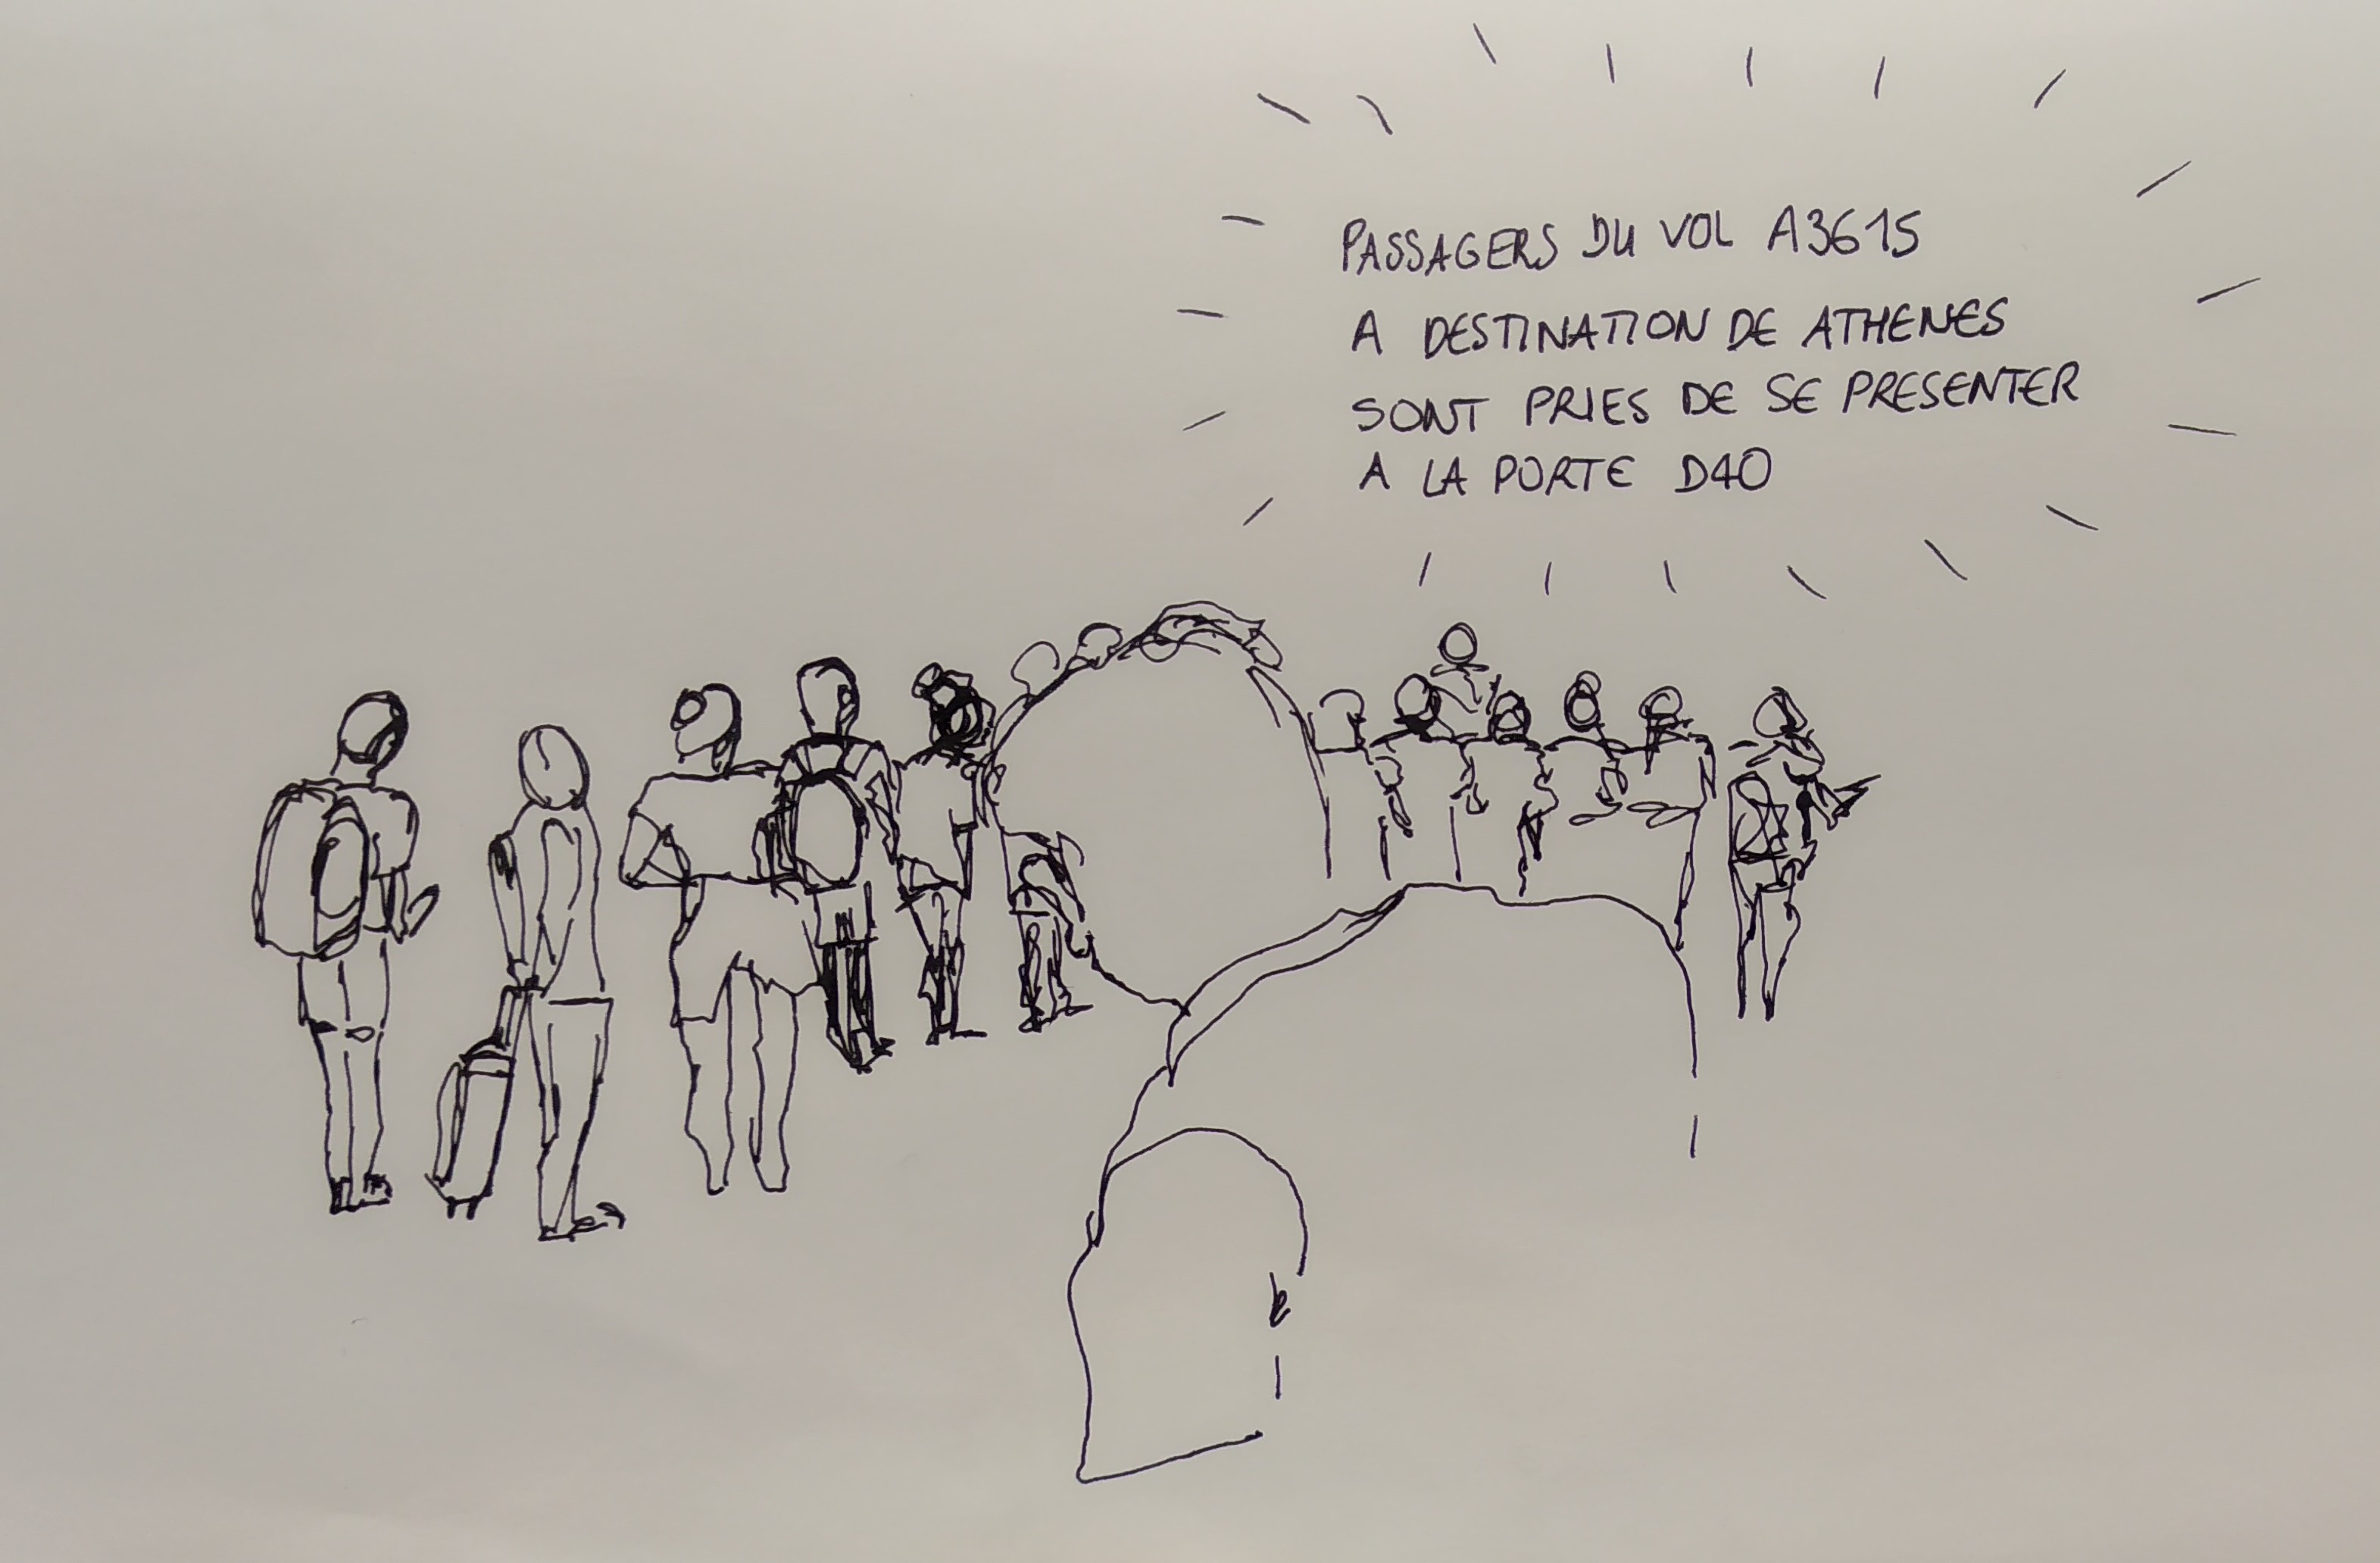 PASSAGERS DU VOL A3615
A DESTINATION DE ATHENES
SONT PRIES DE SE PRESENTER
A LA PORTE D40